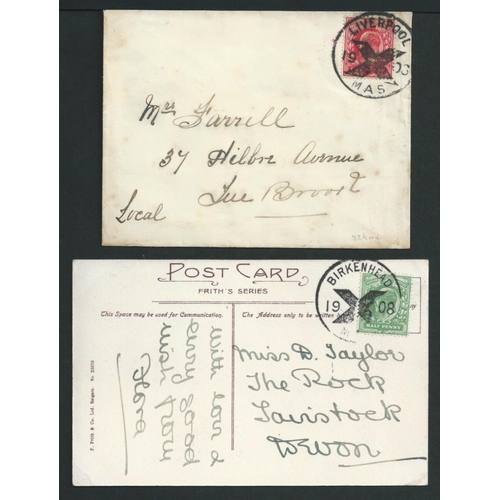 LIVERPOOL
19 X 03
MAS
Mrs Farrill
37 Hilbre Avenue
Tue Brook
Local
POST CARD
FRITH'S SERIES
This Space may be used for Communication.
The Address only to be written
BIRKENHEAD
19 X 08
HALF PENNY
with love &
every good
wish from
Flora
Miss D. Taylor
The Rock
Tavistock
Devon
F. Frith & Co. Ltd. Reigate.